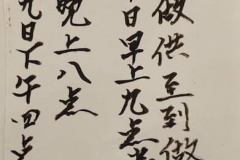 做供互到做
日早上九点
晚上八点
九日下午四点